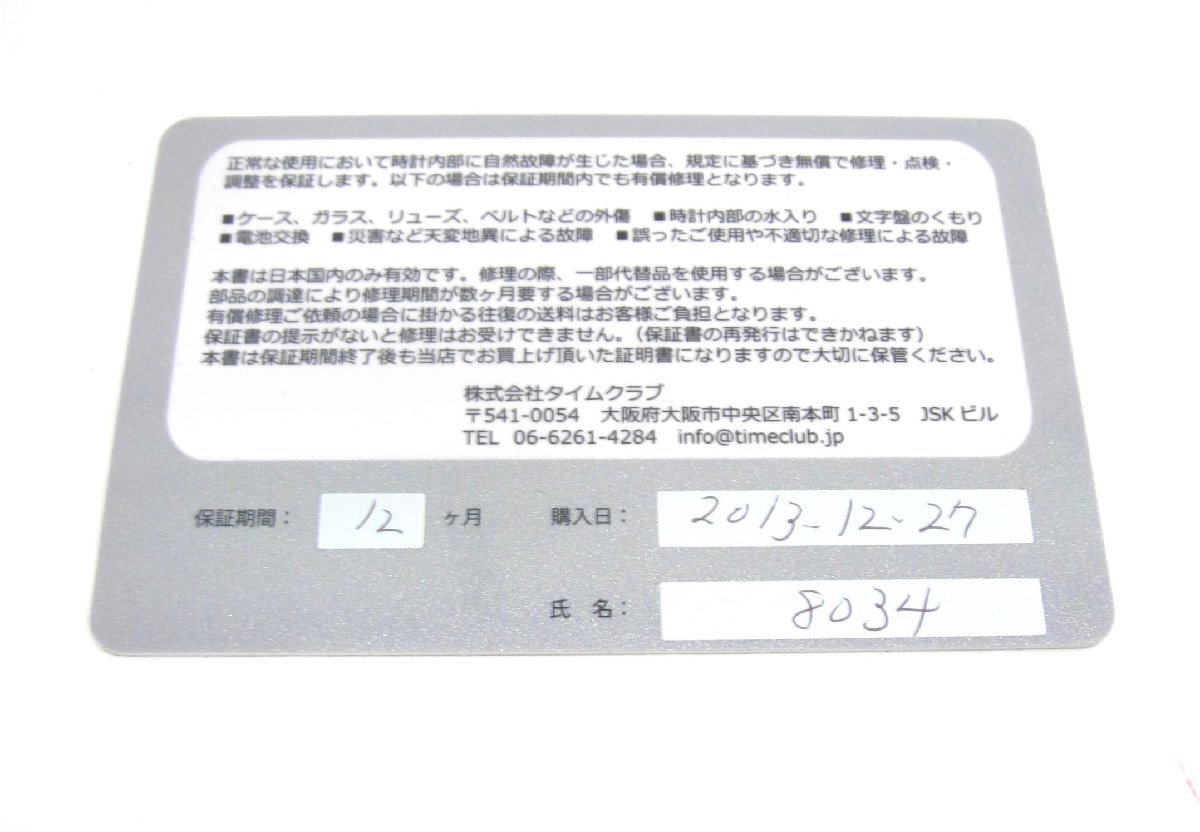 正常な使用において時計内部に自然故障が生じた場合、規定に基づき無償で修理・点検・
調整を保証します。以下の場合は保証期間内でも有償修理となります。
■ケース、ガラス、リューズ、ベルトなどの外傷 ■時計内部の水入り ■文字盤のくもり
■電池交換 ■災害など天変地異による故障 ■誤ったご使用や不適切な修理による故障
本書は日本国内のみ有効です。修理の際、一部代替品を使用する場合がございます。
部品の調達により修理期間が数ヶ月要する場合がございます。
有償修理ご依頼の場合に掛かる往復の送料はお客様ご負担となります。
保証書の提示がないと修理はお受けできません。(保証書の再発行はできかねます)
本書は保証期間終了後も当店でお買上げ頂いた証明書になりますので大切に保管ください。
株式会社タイムクラブ
〒541-0054 大阪府大阪市中央区南本町 1-3-5 JSK ビル
TEL 06-6261-4284 info@timeclub.jp
保証期間： 12 ヶ月 購入日： 2013-12-27
氏 名： 8034